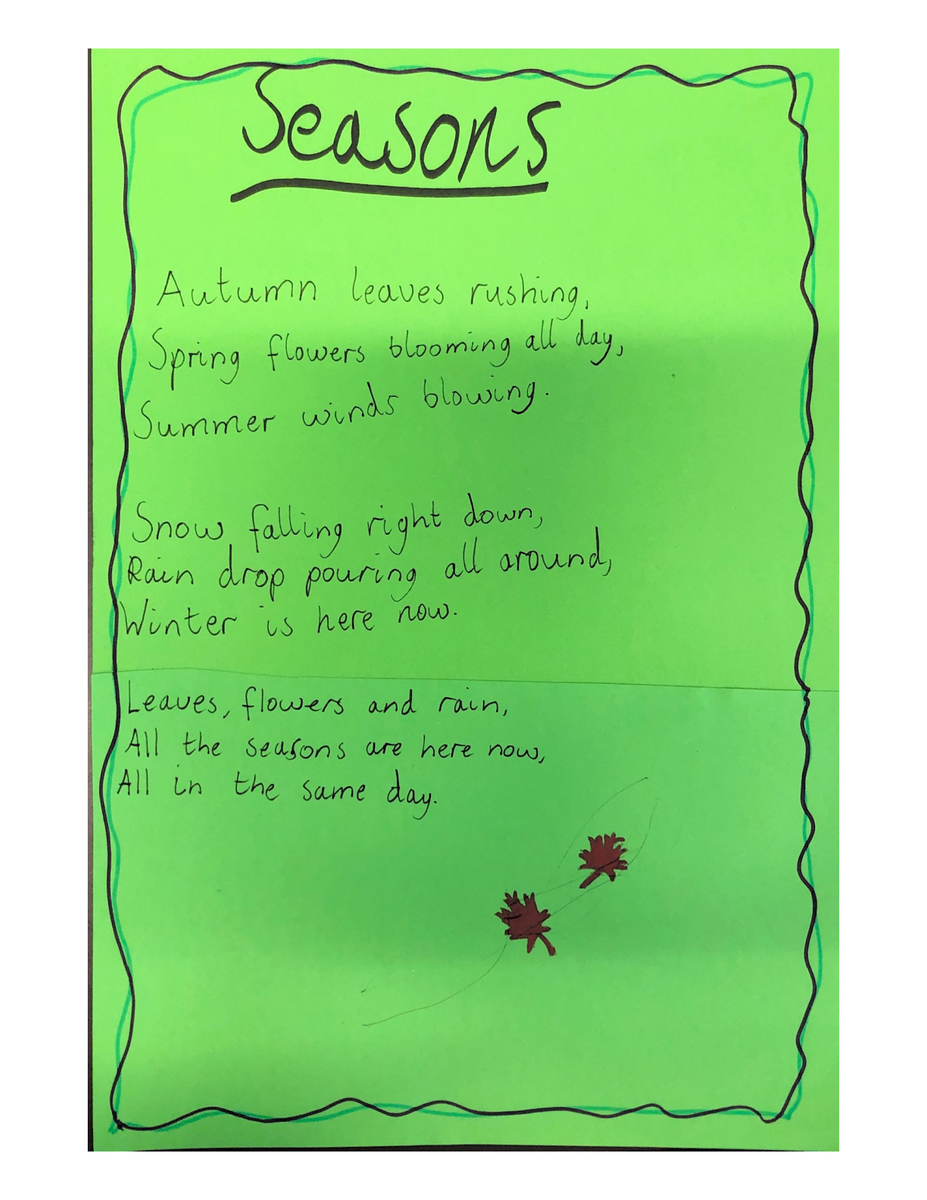 Seasons
Autumn leaves rushing,
Spring flowers blooming all day,
Summer winds blowing.
Snow falling right down,
Rain drop pouring all around,
Winter is here now.
Leaves, flowers and rain,
All the seasons are here now,
All in the same day.